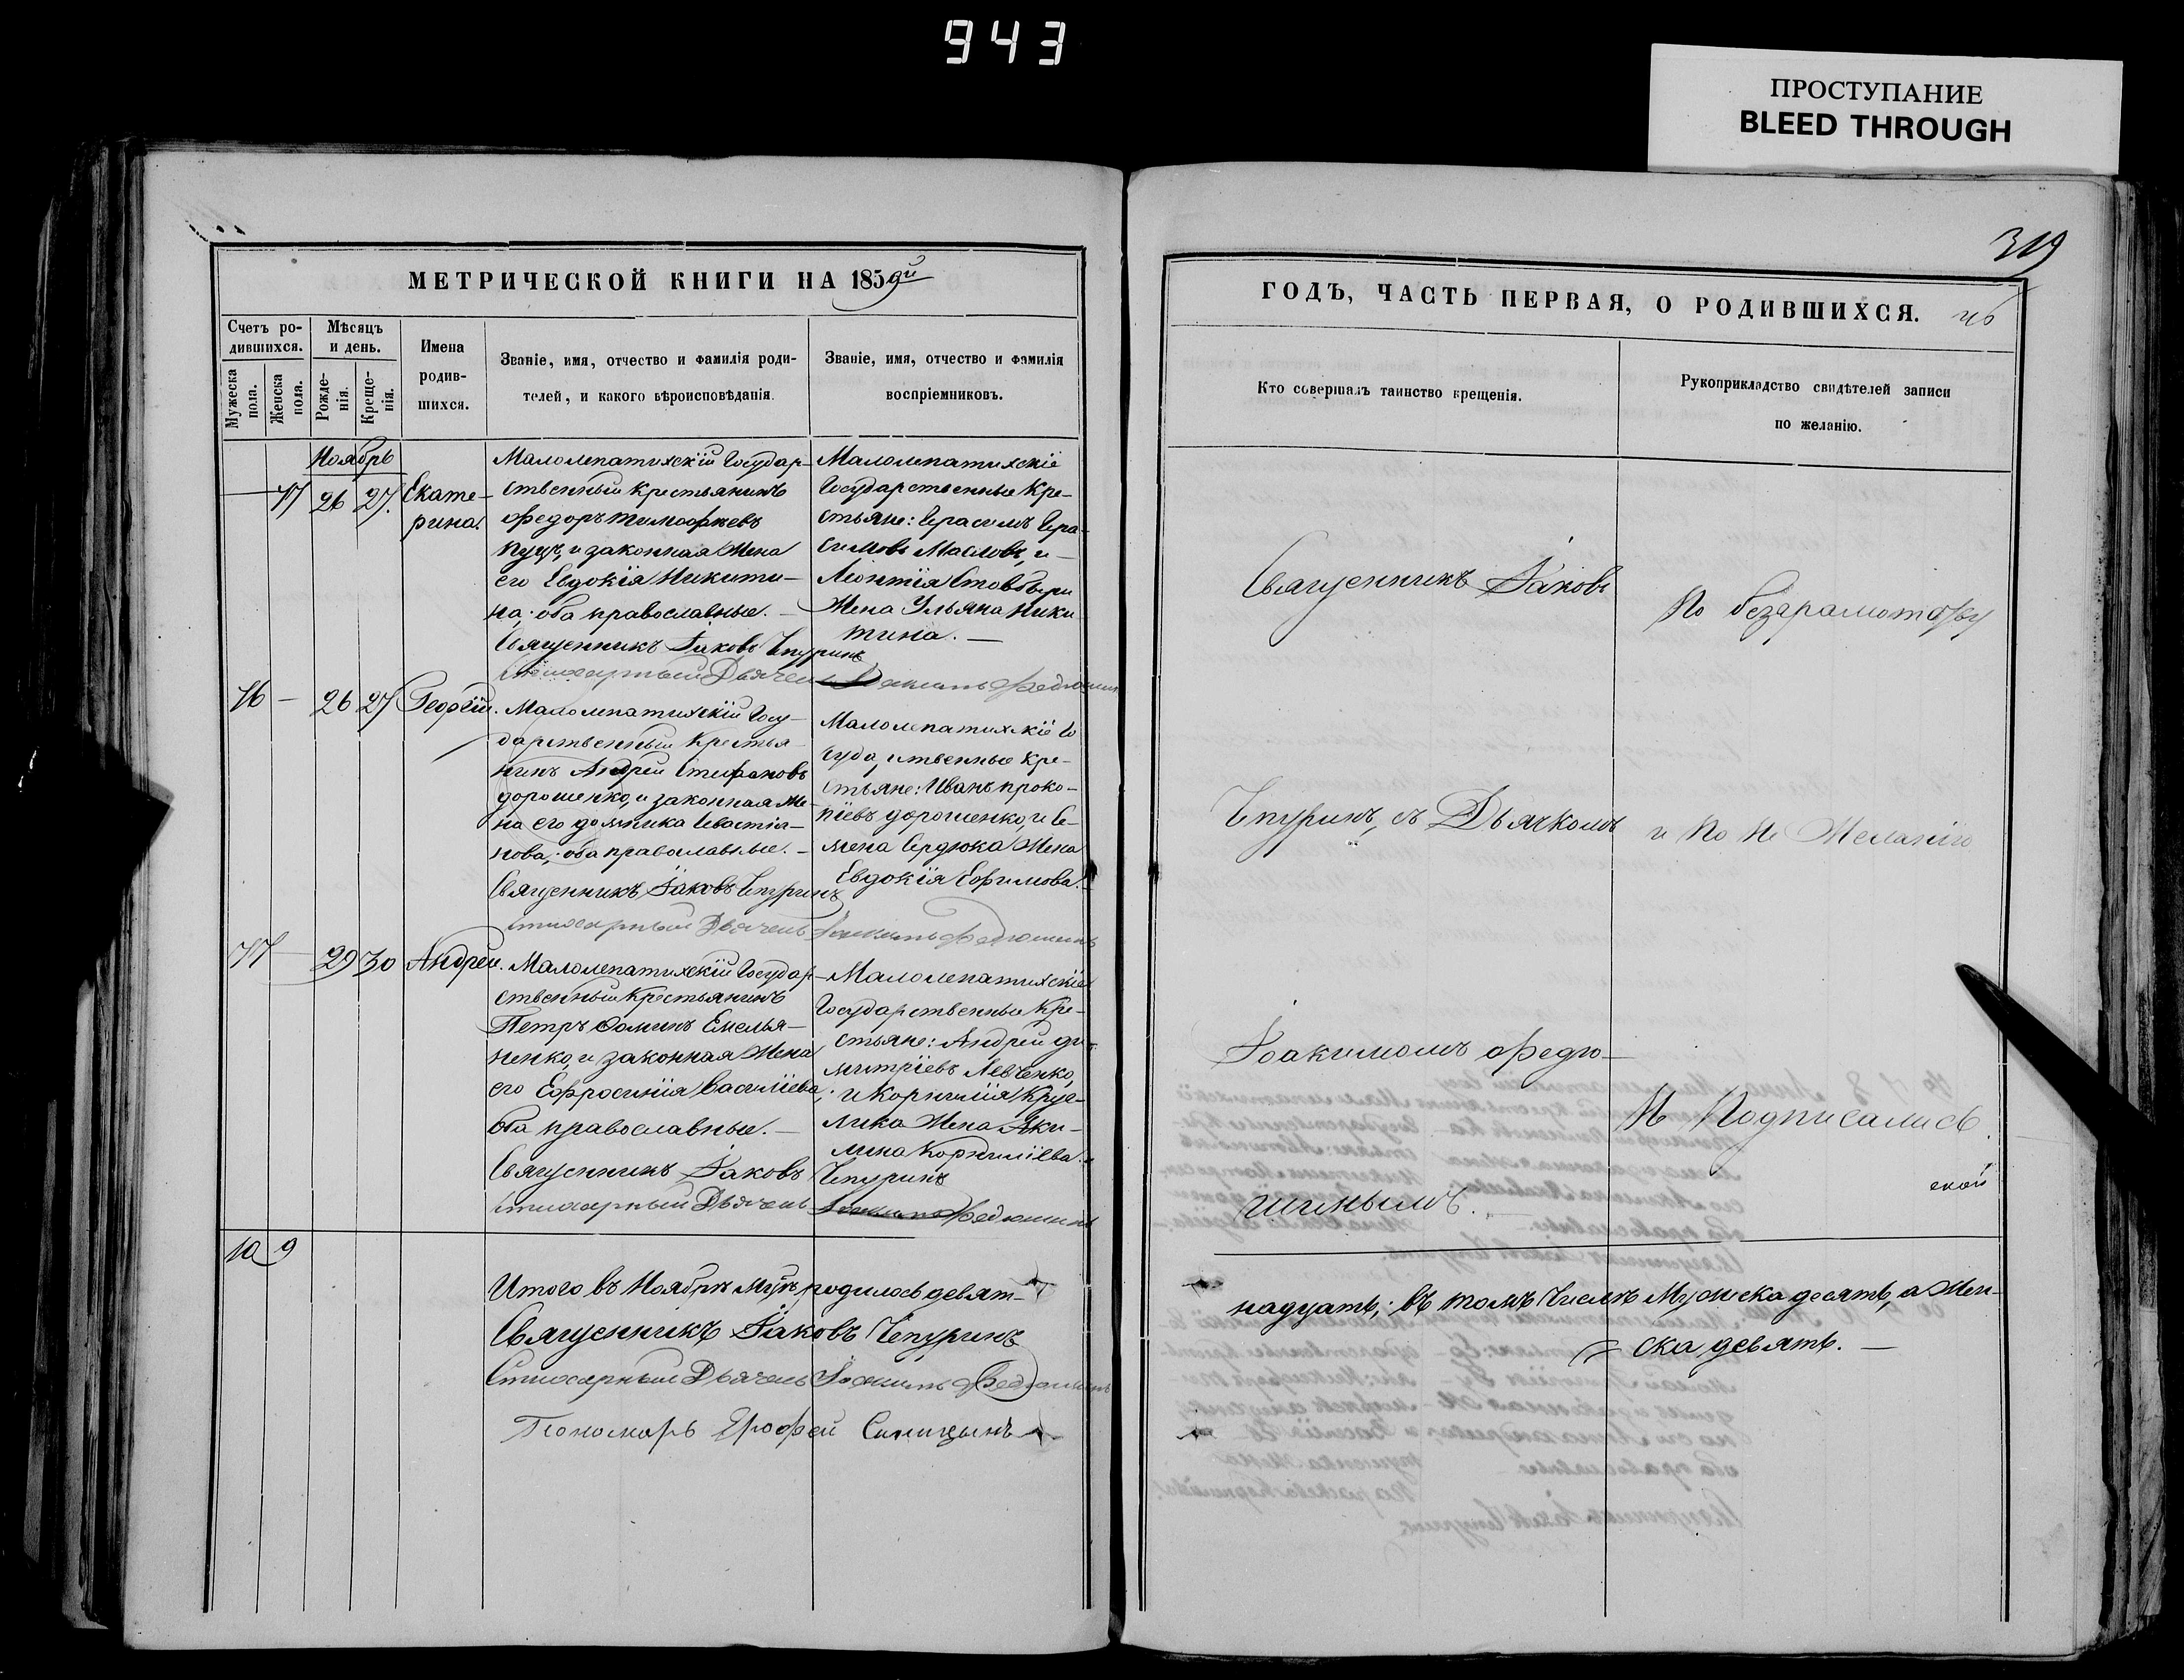 943
ПРОСТУПАНИЕ
BLEED THROUGH
319
МЕТРИЧЕСКОЙ КНИГИ НА 1859й
Счетъ ро-
дившихся.
Мужеска
пола.
Женска
пола.
Мѣсяцъ
и день.
Рожде-
нія.
Креще-
нія.
Имена
родив-
шихся.
Званіе, имя, отчество и фамилія роди-
телей, и какого вѣроисповѣданія.
Званіе, имя, отчество и фамилія
воспріемниковъ.
Ноябрь
26 27. Екате-
рина.
Малолепатихскій Государ-
ственный крестьянинъ
Федоръ Тимофѣевъ
и законная Жена
его Евдокія Никити-
на, оба православные.
Священникъ Іаковъ Чепуринъ
Стихарный Дьячекъ Іоакимъ Федюшинъ
Малолепатихскіе
Государственные Кре-
стьяне: Герасимъ Гера-
симовъ Масловъ, и
Леонтія
Жена Ульяна Ники
тина.
16 — 26 27 Георгій.
Малолепатихскій Госу-
дарственный Крестья-
нинъ Андрей Стефановъ
дорошенко, и законная Же-
на его домника Севастія-
нова, оба православные.
Священникъ Іаковъ Чепуринъ
Стихарный Дьячекъ Іоакимъ Федюшинъ
Малолепатихскіе Го
сударственные Кре-
стьяне: Иванъ проко-
піевъ дорошенко, и Се-
мена Сердюка Жена
Евдокія Ефимова.
17 — 29 30 Андрей.
Малолепатихскій Государ-
ственный Крестьянинъ
Петръ Фоминъ Емелья-
ненко, и законная Жена
его Ефросинія Василіева,
оба православные.
Священникъ Іаковъ Чепуринъ
Стихарный Дьячекъ Іоакимъ Федюшинъ
Малолепатихскіе
Государственные Кре-
стьяне: Андрей ди-
митріевъ Левченко,
и Корнилія Круг-
лика Жена Аки-
лина Корниліева.
10 9
Итого въ Ноябрѣ мцѣ, родилось девят-
Священникъ Іаковъ Чепуринъ
Стихарный Дьячекъ Іоакимъ Федюшинъ
Пономарь Ерофей Синицынъ
ГОДЪ, ЧАСТЬ ПЕРВАЯ, О РОДИВШИХСЯ.
Кто совершалъ таинство крещенія.
Рукоприкладство свидѣтелей записи
по желанію.
Священникъ Іаковъ
Чепуринъ, съ Дьячкомъ
Іоакимомъ Федю-
шинымъ.
По безграмотству
и по не Желанію
не Подписались.
надцать; въ томъ Числѣ Мужеска десять, а Жен-
ска девять.